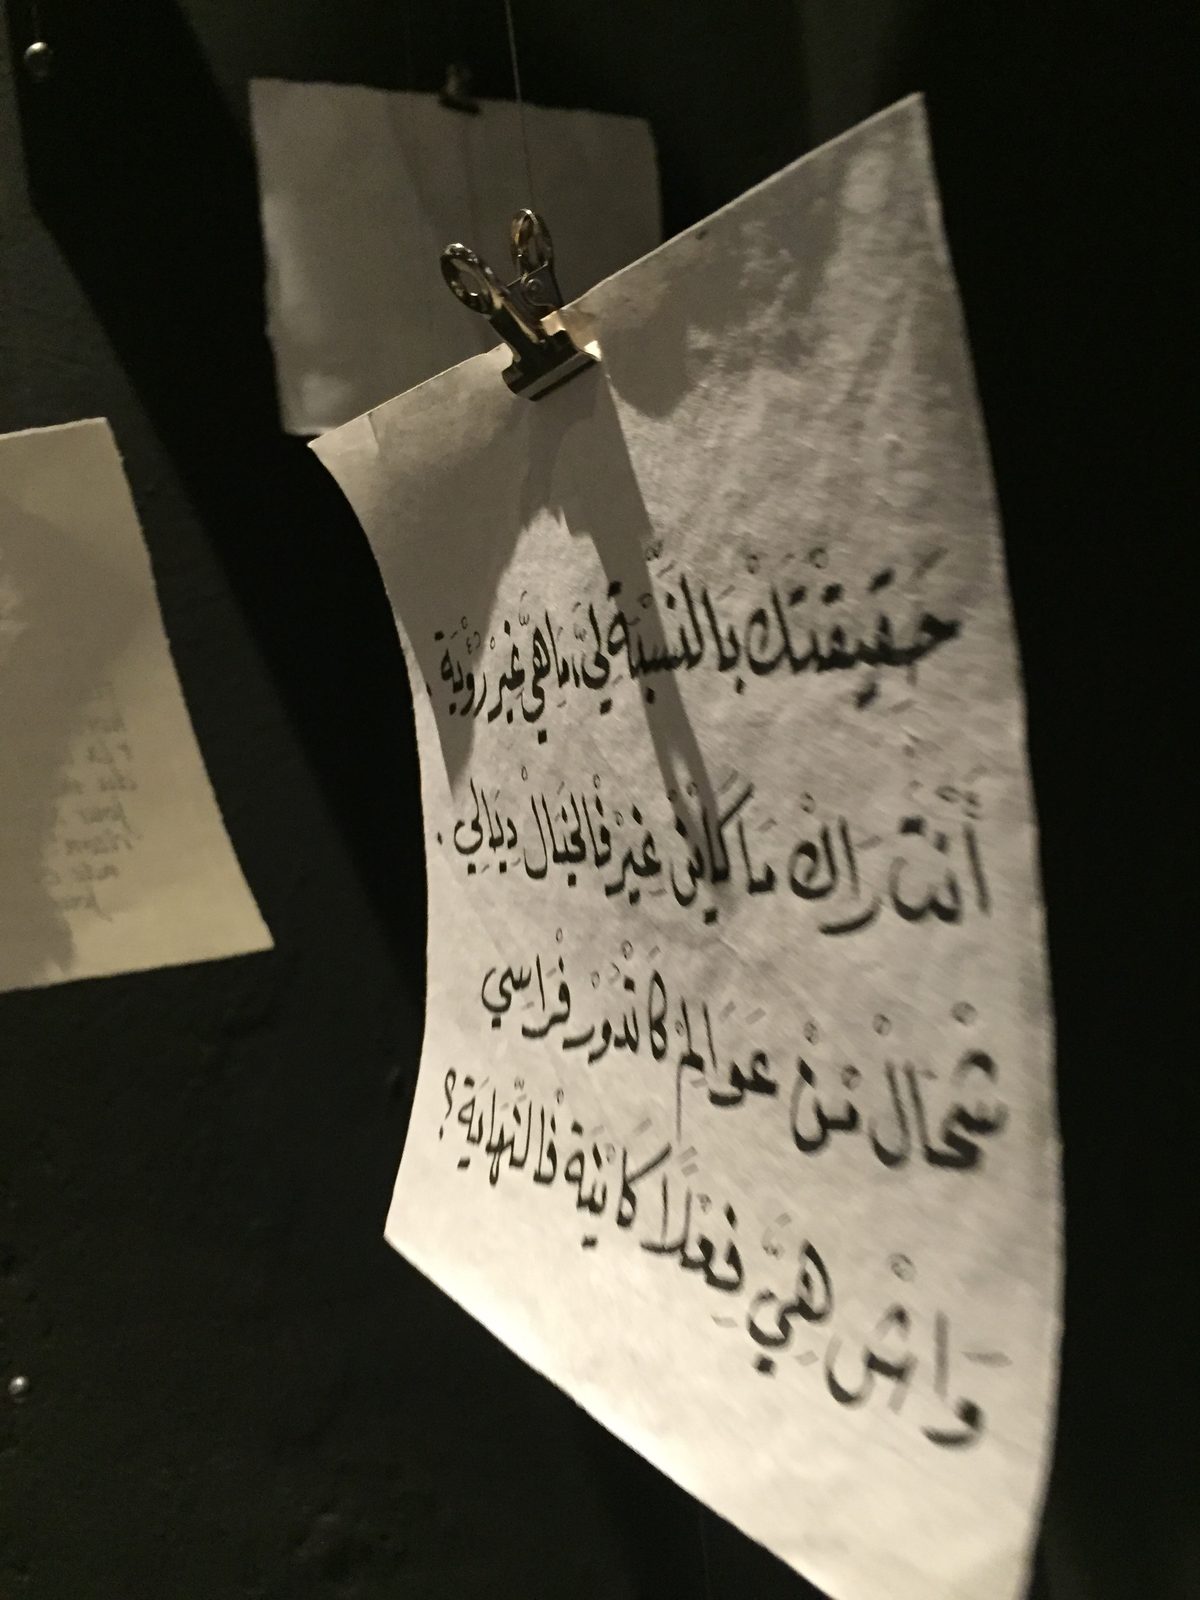 حَقِيقْتَكْ بَالنِّسْبَة لِيَّ، مَا هِيَّ غِيرْ رُؤْيَة .
أَنْتَ رَاكْ مَا كَايْنْ غِيرْ فْالخَيَالْ دِيَالِي .
شْحَالْ مْنْ عَوَالِمْ كَاتْدُورْ فْرَاسِي
وَاشْ هِيَّ فِعْلًا كَايْنَة فْالنِّهَايَة؟